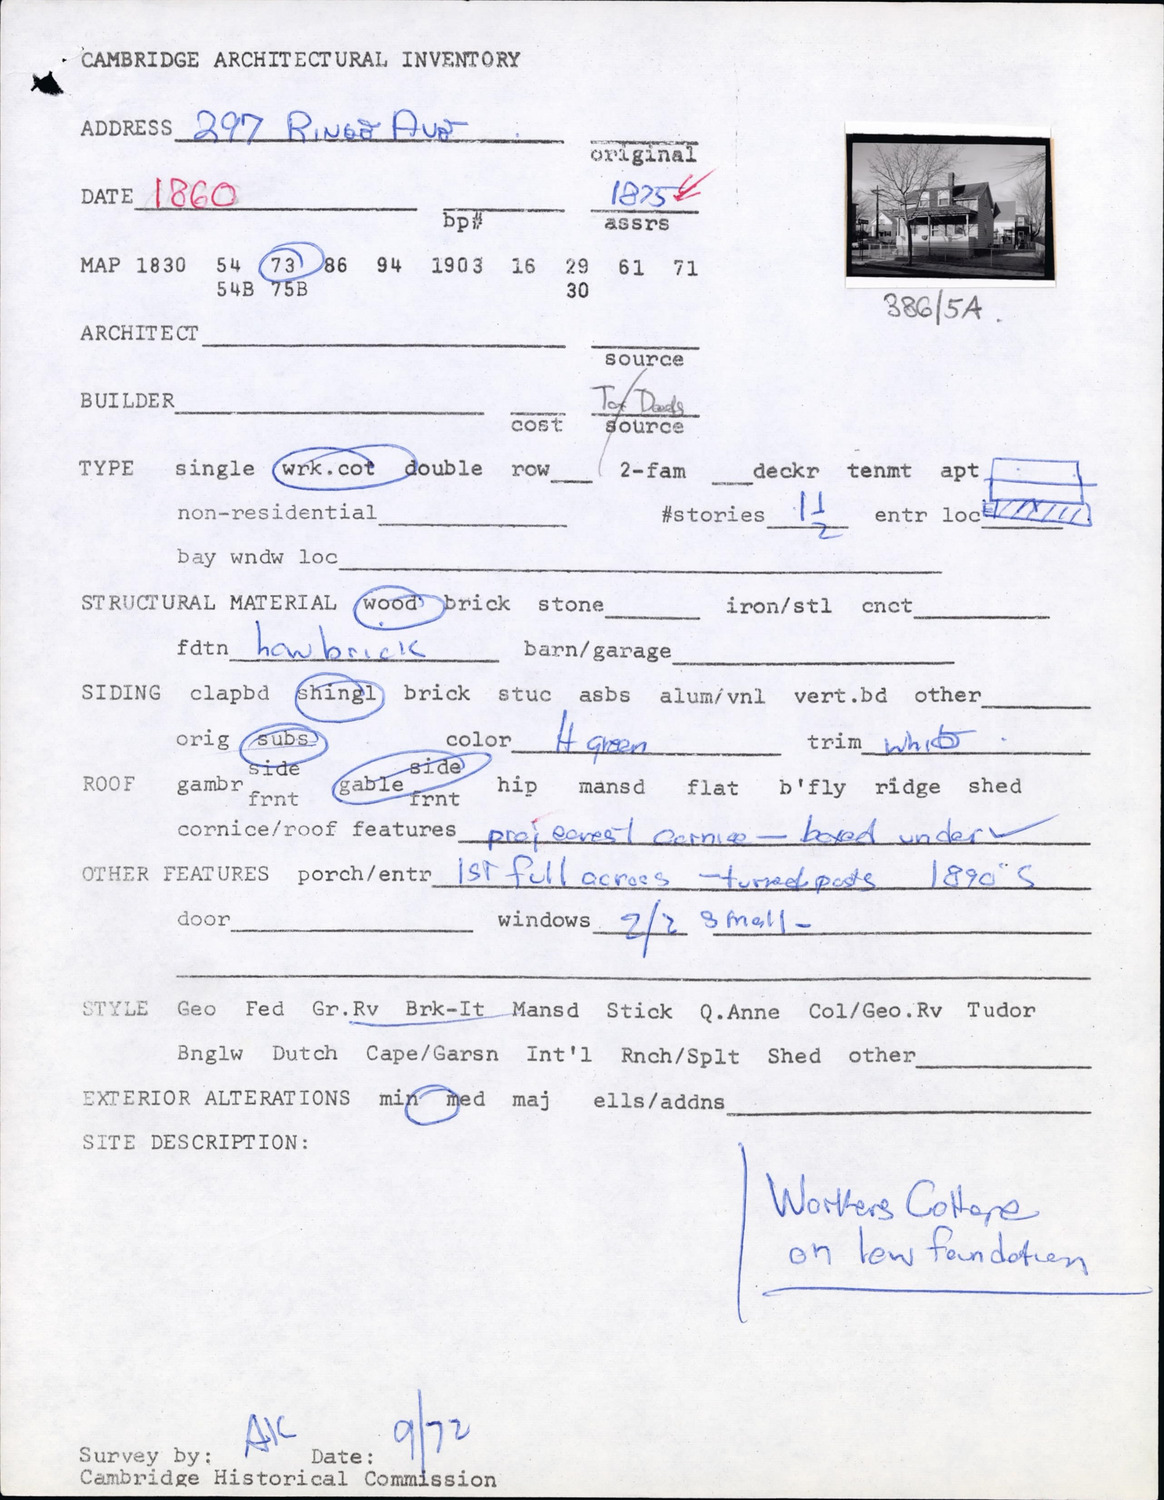 CAMBRIDGE ARCHITECTURAL INVENTORY
ADDRESS 297 RINGE AVE
original
DATE 1860 1875
bp# assrs
MAP 1830 54 73 86 94 1903 16 29 61 71
54B 75B 30
386/5A.
ARCHITECT
source
BUILDER Tax Deeds
cost source
TYPE single wrk.cot double row 2-fam deckr tenmt apt
non-residential #stories 1 1/2 entr loc
bay wndw loc
STRUCTURAL MATERIAL wood brick stone iron/stl cnct
fdtn low brick barn/garage
SIDING clapbd shingl brick stuc asbs alum/vnl vert.bd other
orig subs color green trim white
ROOF gambr side frnt gable side frnt hip mansd flat b'fly ridge shed
cornice/roof features proj eaves cornice — boxed under
OTHER FEATURES porch/entr 1ST full across — turned posts 1890's
door windows 2/2 small -
STYLE Geo Fed Gr.Rv Brk-It Mansd Stick Q.Anne Col/Geo.Rv Tudor
Bnglw Dutch Cape/Garsn Int'l Rnch/Splt Shed other
EXTERIOR ALTERATIONS min med maj ells/addns
SITE DESCRIPTION:
Workers Cottage
on low foundation
Survey by: AK Date: 9/72
Cambridge Historical Commission